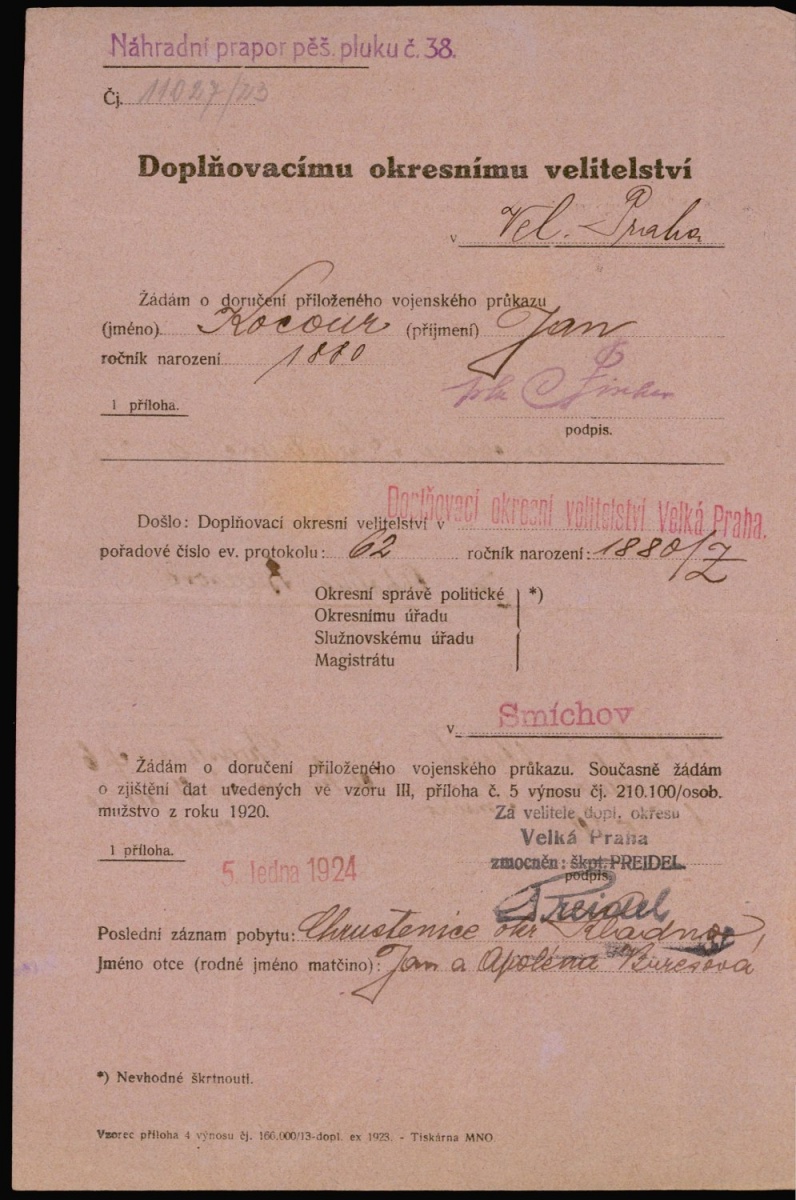 Náhradní prapor pěš. pluku č. 38.
Čj. 11027/23
Doplňovacímu okresnímu velitelství
v Vel. Praha
Žádám o doručení přiloženého vojenského průkazu
(jméno) Kocour (příjmení) Jan
ročník narození 1880
1 příloha.
podpis.
Došlo: Doplňovací okresní velitelství v Doplňovací okresní velitelství Velká Praha.
pořadové číslo ev. protokolu: 62 ročník narození: 1880/Z
Okresní správě politické *)
Okresnímu úřadu
Služnovskému úřadu
Magistrátu
v Smíchov
Žádám o doručení přiloženého vojenského průkazu. Současně žádám
o zjištění dat uvedených ve vzoru III, příloha č. 5 výnosu čj. 210.100/osob.
mužstvo z roku 1920.
Za velitele dopl. okresu
Velká Praha
1 příloha.
zmocněn: škpt. PREIDEL.
5. ledna 1924
podpis.
Preidel
Poslední záznam pobytu: Chrustenice okr Kladno,
Jméno otce (rodné jméno matčino): Jan a Apolena Burešová
*) Nevhodné škrtnouti.
Vzorec příloha 4 výnosu čj. 166.000/13-dopl. ex 1923. - Tiskárna MNO.